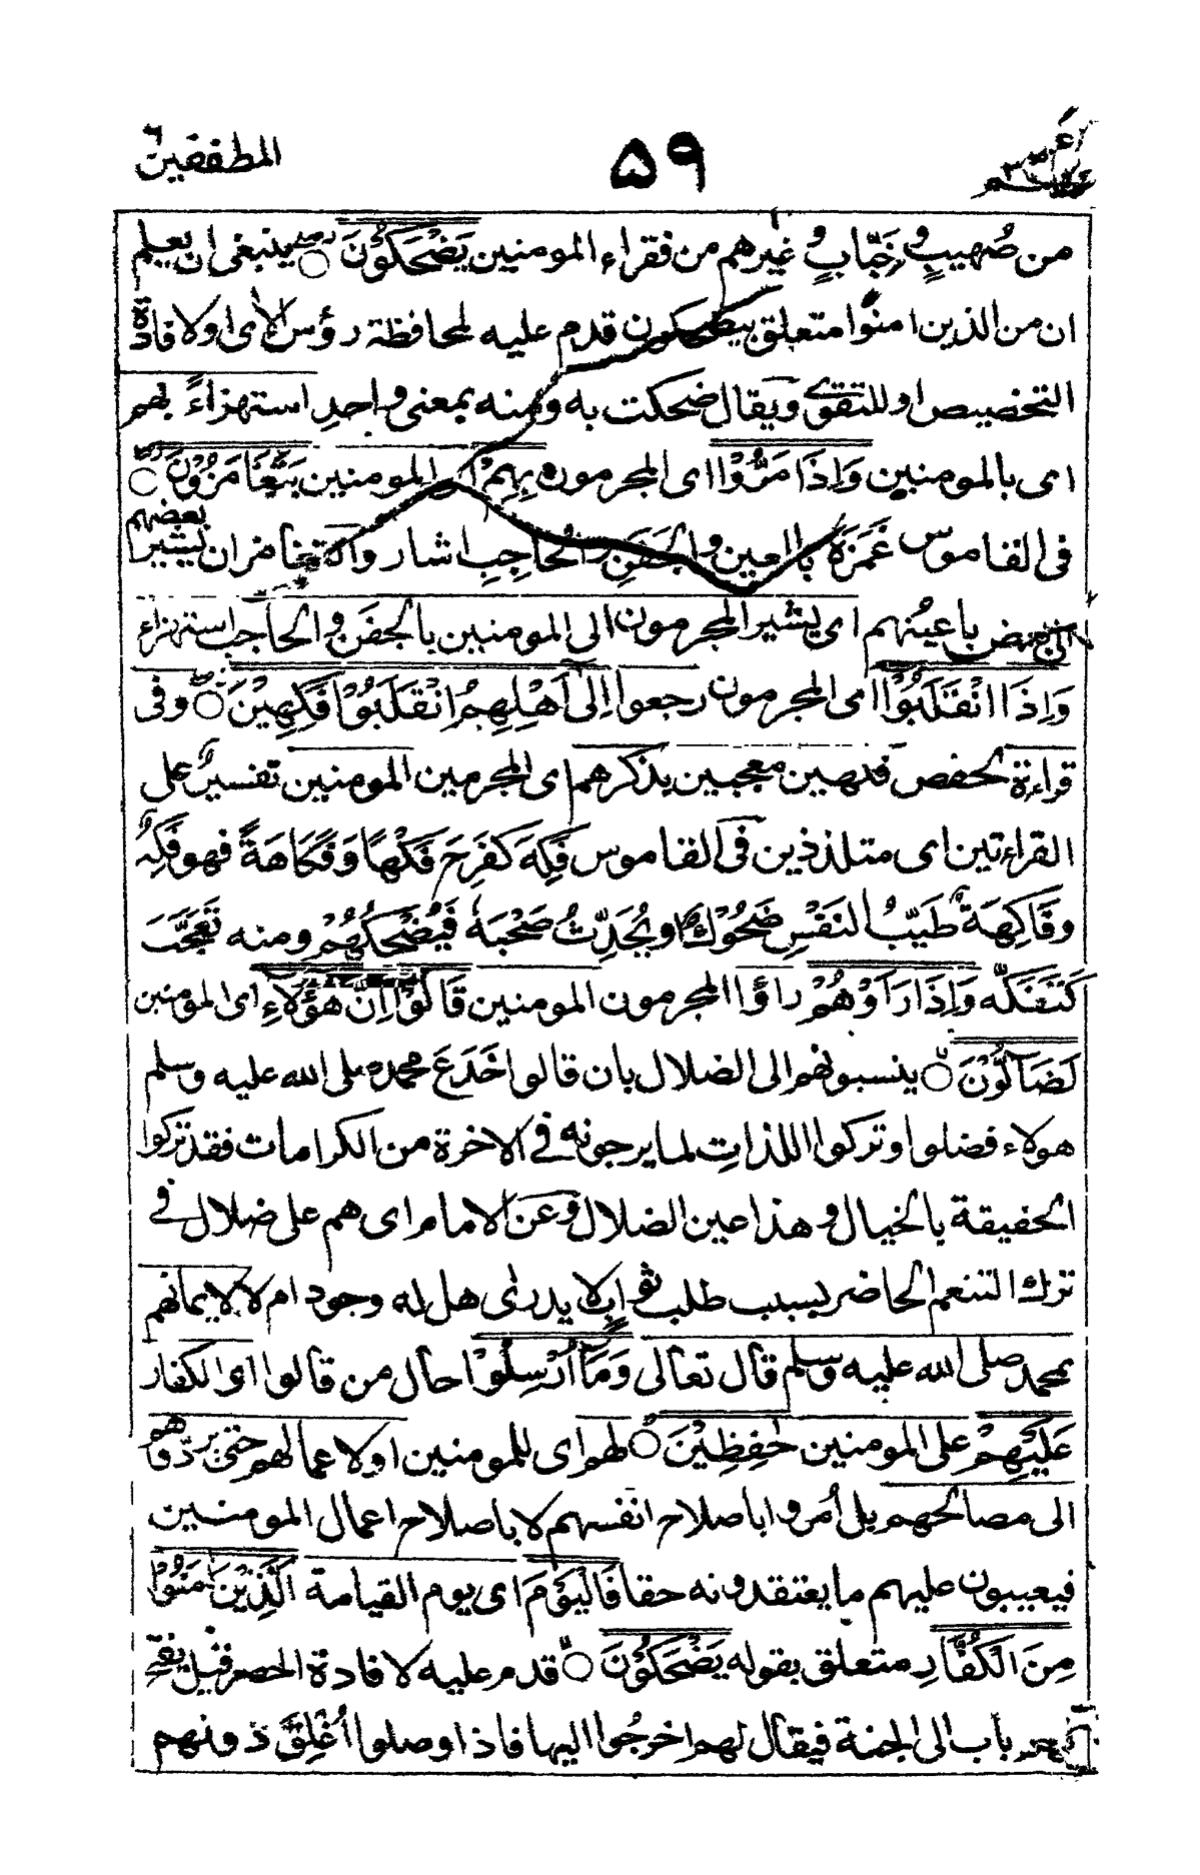 المطففين ٥٩
من صُهيبٍ وخَبّابٍ و غيرهم من فقراء المومنين يَضْحَكُوْنَ ○ ينبغى ان يعلم
ان من الذين امنوا متعلق بيضحكون قدم عليه لمحافظة رؤس الأى او لافادة
التخصيص او للتقوى ويقال ضحكت به ومنه بمعنى واحدٍ استهزاءً بهم
اى بالمومنين وَاِذَا مَرُّوْا اى المجرمون بِهِمْ اى المومنين يَتَغَامَزُوْنَ ○
فى القاموس غَمَزَهٗ بالعين والجَفَنِ والحاجِبِ اشار والتغامزان يشير بعضهم
الى بعض باعينهم اى يشير المجرمون الى المومنين بالجفن و الحاجب استهزاء
وَاِذَا انْقَلَبُوْا اى المجرمون رجعوا اِلٰى اَهْلِهِمُ انْقَلَبُوْا فٰكِهِيْنَ ○ وفى
قراءة لحفص فكهين معجبين بذكرهم اى المجرمين المومنين تفسيرٌ على
القراءتين اى متلذذين فى القاموس فَكِهَ كَفَرِحَ فَكَهًا وَفَكَاهَةً فهو فَكِهٌ
وفَاكِهَةٌ طَيّبُ النَفْسِ ضَحُوْكٌ او يُحَدِّثُ صَحْبَهٗ فَيُضْحِكُهُمْ ومنه تَعَجَّبَ
كَتَفَكَّه وَاِذَا رَاَوْهُمْ راؤا المجرمون المومنين قَالُوْا اِنَّ هٰؤُلَاءِ اى المومنين
لَضَآلُّوْنَ ○ ينسبونهم الى الضلال بان قالوا خَدَعَ محمد صلى الله عليه وسلم
هولاء فضلوا وتركوا اللذاتِ لما يرجونه فى الاخرة من الكرامات فقد تركوا
الحقيقة بالخيال و هذا عين الضلال وعن الامام اى هم على ضلال فى
ترك التنعم الحاضر بسبب طلب ثوابٍ لا يدرٰى هل له وجود ام لا لايمانهم
بمحمد صلى الله عليه وسلم قال تعالى وَمَا اُرْسِلُوْا حال من قالوا اى الكفار
عَلَيْهِمْ على المومنين حٰفِظِيْنَ ○ لهم اى للمومنين او لاعمالهم حتى يردّوهم
الى مصالحهم بل اُمروا باصلاح انفسهم لا باصلاح اعمال المومنين
فيعيبون عليهم ما يعتقدونه حقا فَالْيَوْمَ اى يوم القيامة الَّذِيْنَ اٰمَنُوْا
مِنَ الْكُفَّارِ متعلق بقوله يَضْحَكُوْنَ ○ قدم عليه لافادة الحصر قيل يفتح
باب الى الجنة فيقال لهم اخرجُوا اليها فاذا وصلوا اُغْلِقَ دونهم